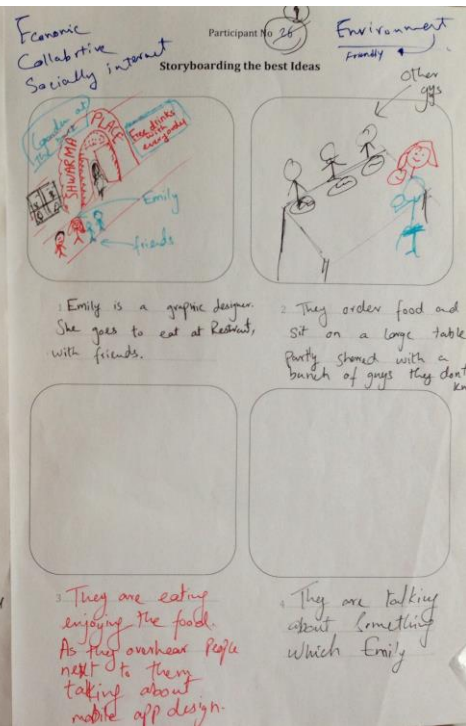 Economic
Collabrtive
Socially internet
Participant No 26
Environment
Friendly
Storyboarding the best Ideas
Other
gys
SHWARMA
PLACE
Free drinks
with
everyorder
Emily
friends
1 Emily is a graphic designer.
She goes to eat at Restrunt,
with friends.
2 They order food and
Sit on a large table
Partly shared with a
bunch of guys they dont
3 They are eating
enjoying the food.
As they overhear People
next to them
talking about
mobile app design.
4 They are talking
about Something
which Emily